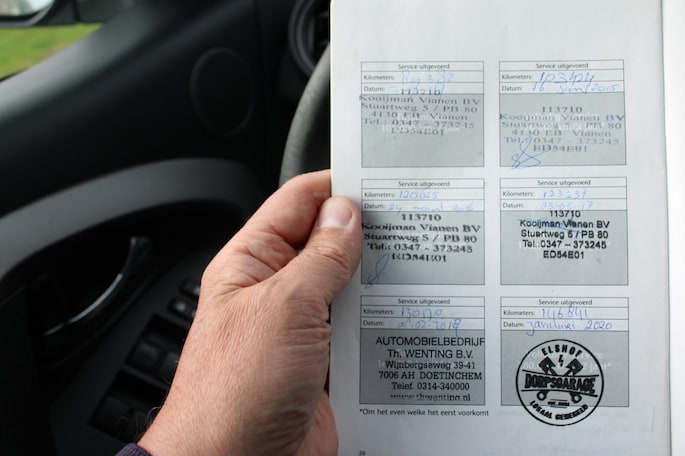 Service uitgevoerd
Kilometers:
Datum:
113710
Kooijman Vianen BV
Stuartweg 5 / PB 80
4130 EB Vianen
Tel.: 0347 - 373245
ED54E01
Service uitgevoerd
Kilometers: 103424
Datum: 16 juni 2015
113710
Kooijman Vianen BV
Stuartweg 5 / PB 80
4130 EB Vianen
Tel.: 0347 - 373245
ED54E01
Service uitgevoerd
Kilometers: 120625
Datum: 24 maart 2016
113710
Kooijman Vianen BV
Stuartweg 5 / PB 80
Tel.: 0347 - 373245
ED54E01
Service uitgevoerd
Kilometers:
Datum: 09-05-17
113710
Kooijman Vianen BV
Stuartweg 5 / PB 80
Tel.:0347 - 373245
ED54E01
Service uitgevoerd
Kilometers: 130170
Datum:
AUTOMOBIELBEDRIJF
Th. WENTING B.V.
Wijnbergseweg 39-41
7006 AH DOETINCHEM
Telef. 0314-340000
www.thwenting.nl
Service uitgevoerd
Kilometers: 146841
Datum: januari 2020
ELSHOF
DORPSGARAGE
LOKAAL GEREGELD
*Om het even welke het eerst voorkomt
26